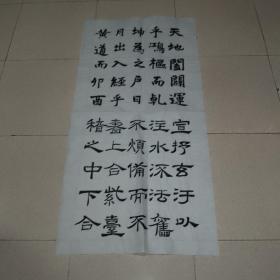 天地闔闢運宣抒玄汙以
乎鴻樞而乾注水深法舊
坤為之戶日不煩備而不
月出入經乎書上合紫臺
黃道而卯酉稽之中下合